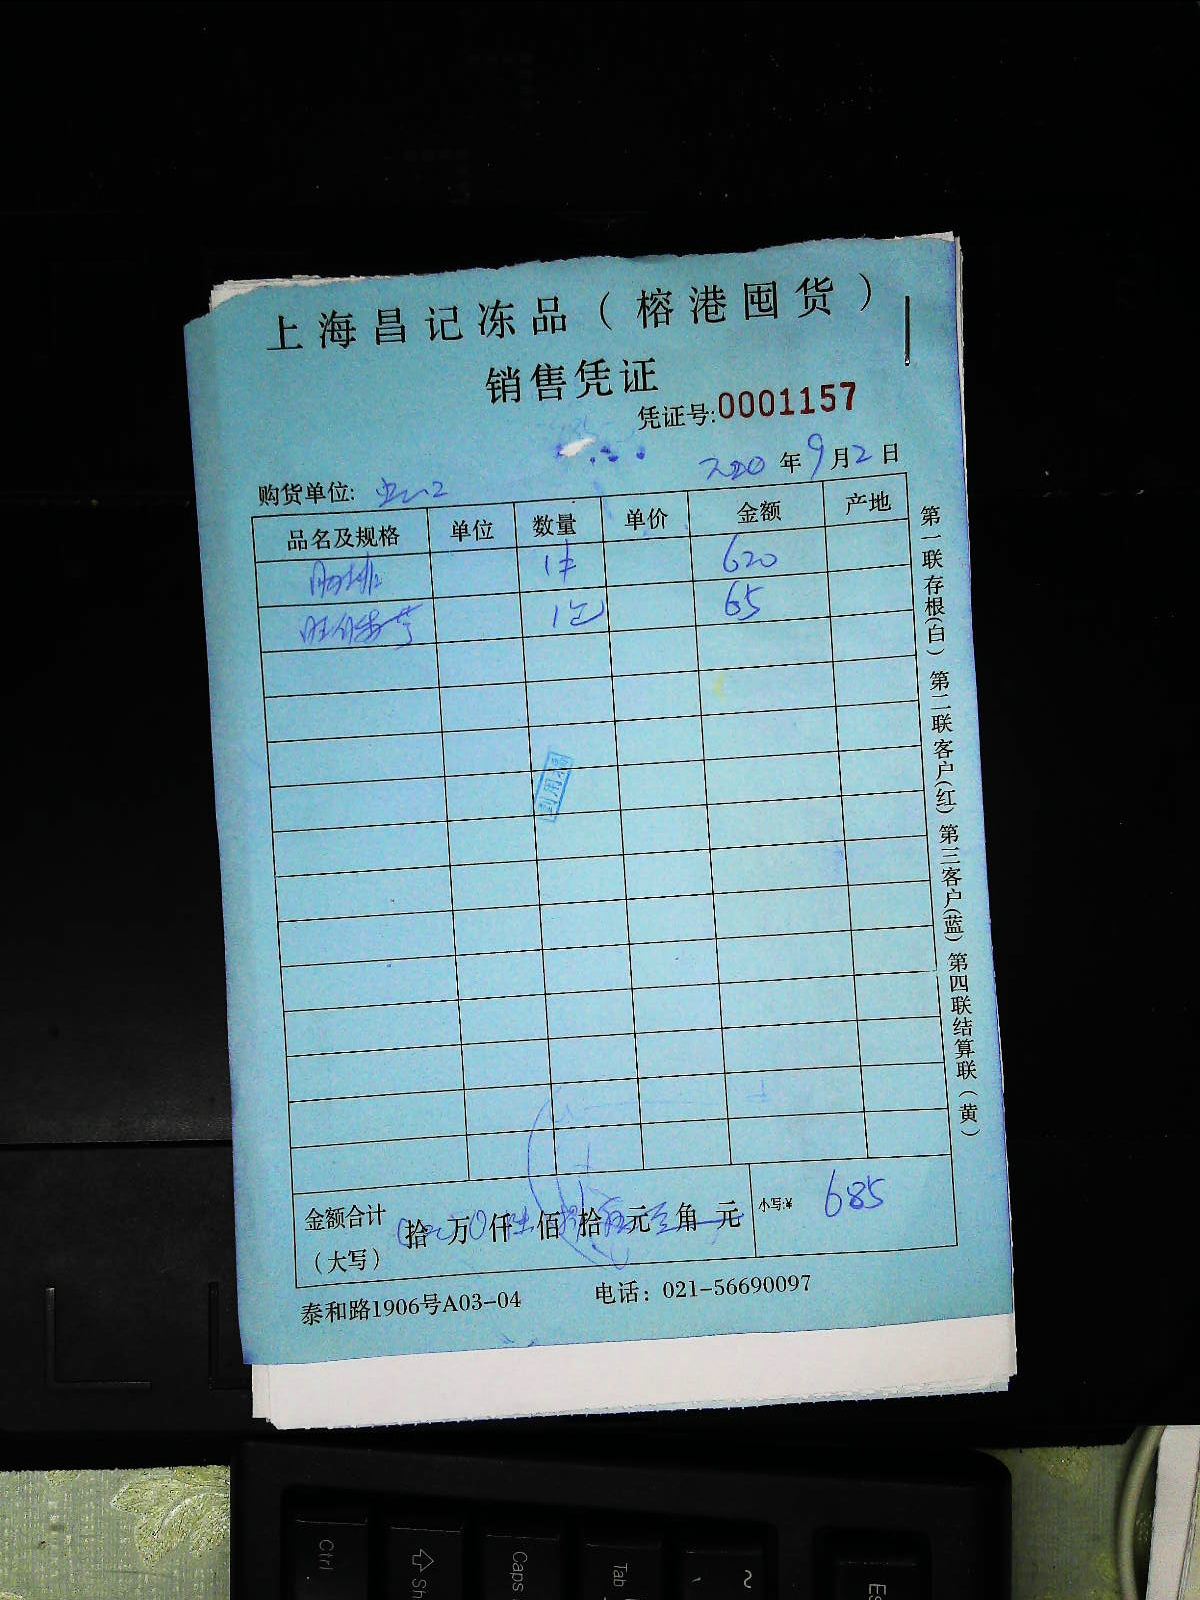 上海昌记冻品（榕港囤货）
销售凭证
凭证号:0001157
2020 年 9 月 2 日
购货单位:
品名及规格 单位 数量 单价 金额 产地
1件 620
1包 65
金额合计 拾 万 0 仟 陆 佰 捌 拾 伍 元 角 元 小写:¥ 685
（大写）
泰和路1906号A03-04 电话：021-56690097
第一联存根(白) 第二联客户(红) 第三客户(蓝) 第四联结算联(黄)
Ctrl
Sh
Caps
Tab
~
Es